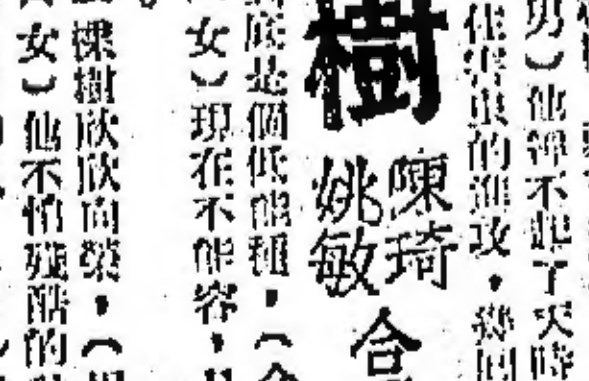 男）他不起了天時
害虫的進攻，
樹
陳琦
姚敏
合
底是個低能種，（合
女）現在不能容，
棵樹欣欣向榮，（
女）他不怕殘酷的